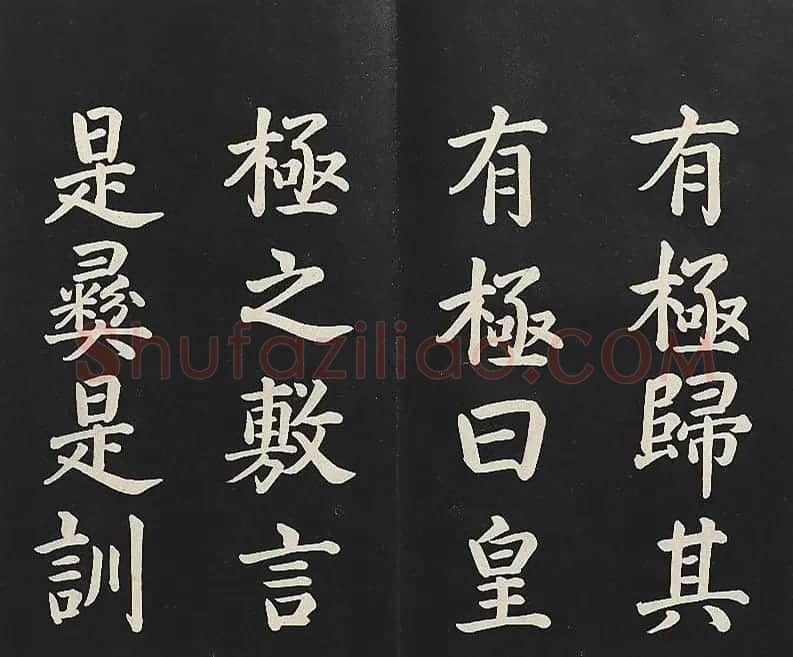 有極歸其
有極曰皇
極之敷言
是彝是訓
Shufaziliao.COM